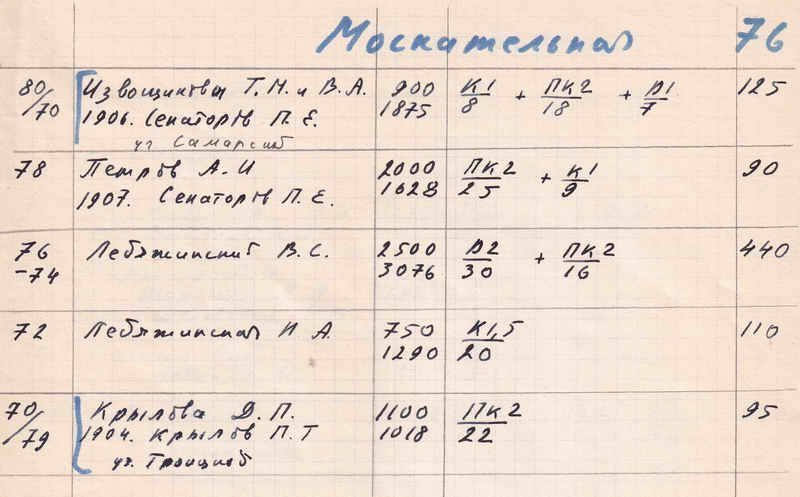 Москательная 76
80/70 Извощиковы Т.М. и В.А. 900 К1/8 + ПК2/18 + Д1/7 125
1906. Сенаторов П.Е. 1875
уг Самарской
78 Петров А.И 2000 ПК2/25 + К1/9 90
1907. Сенаторов П.Е. 1628
76 Лебяжинский В.С. 2500 Д2/30 + ПК2/16 440
-74 3076
72 Лебяжинская И А. 750 К1,5/20 110
1290
70/79 Крылова Д.П. 1100 ПК2/22 95
1904. Крылов П.Т 1018
уг. Троицкой